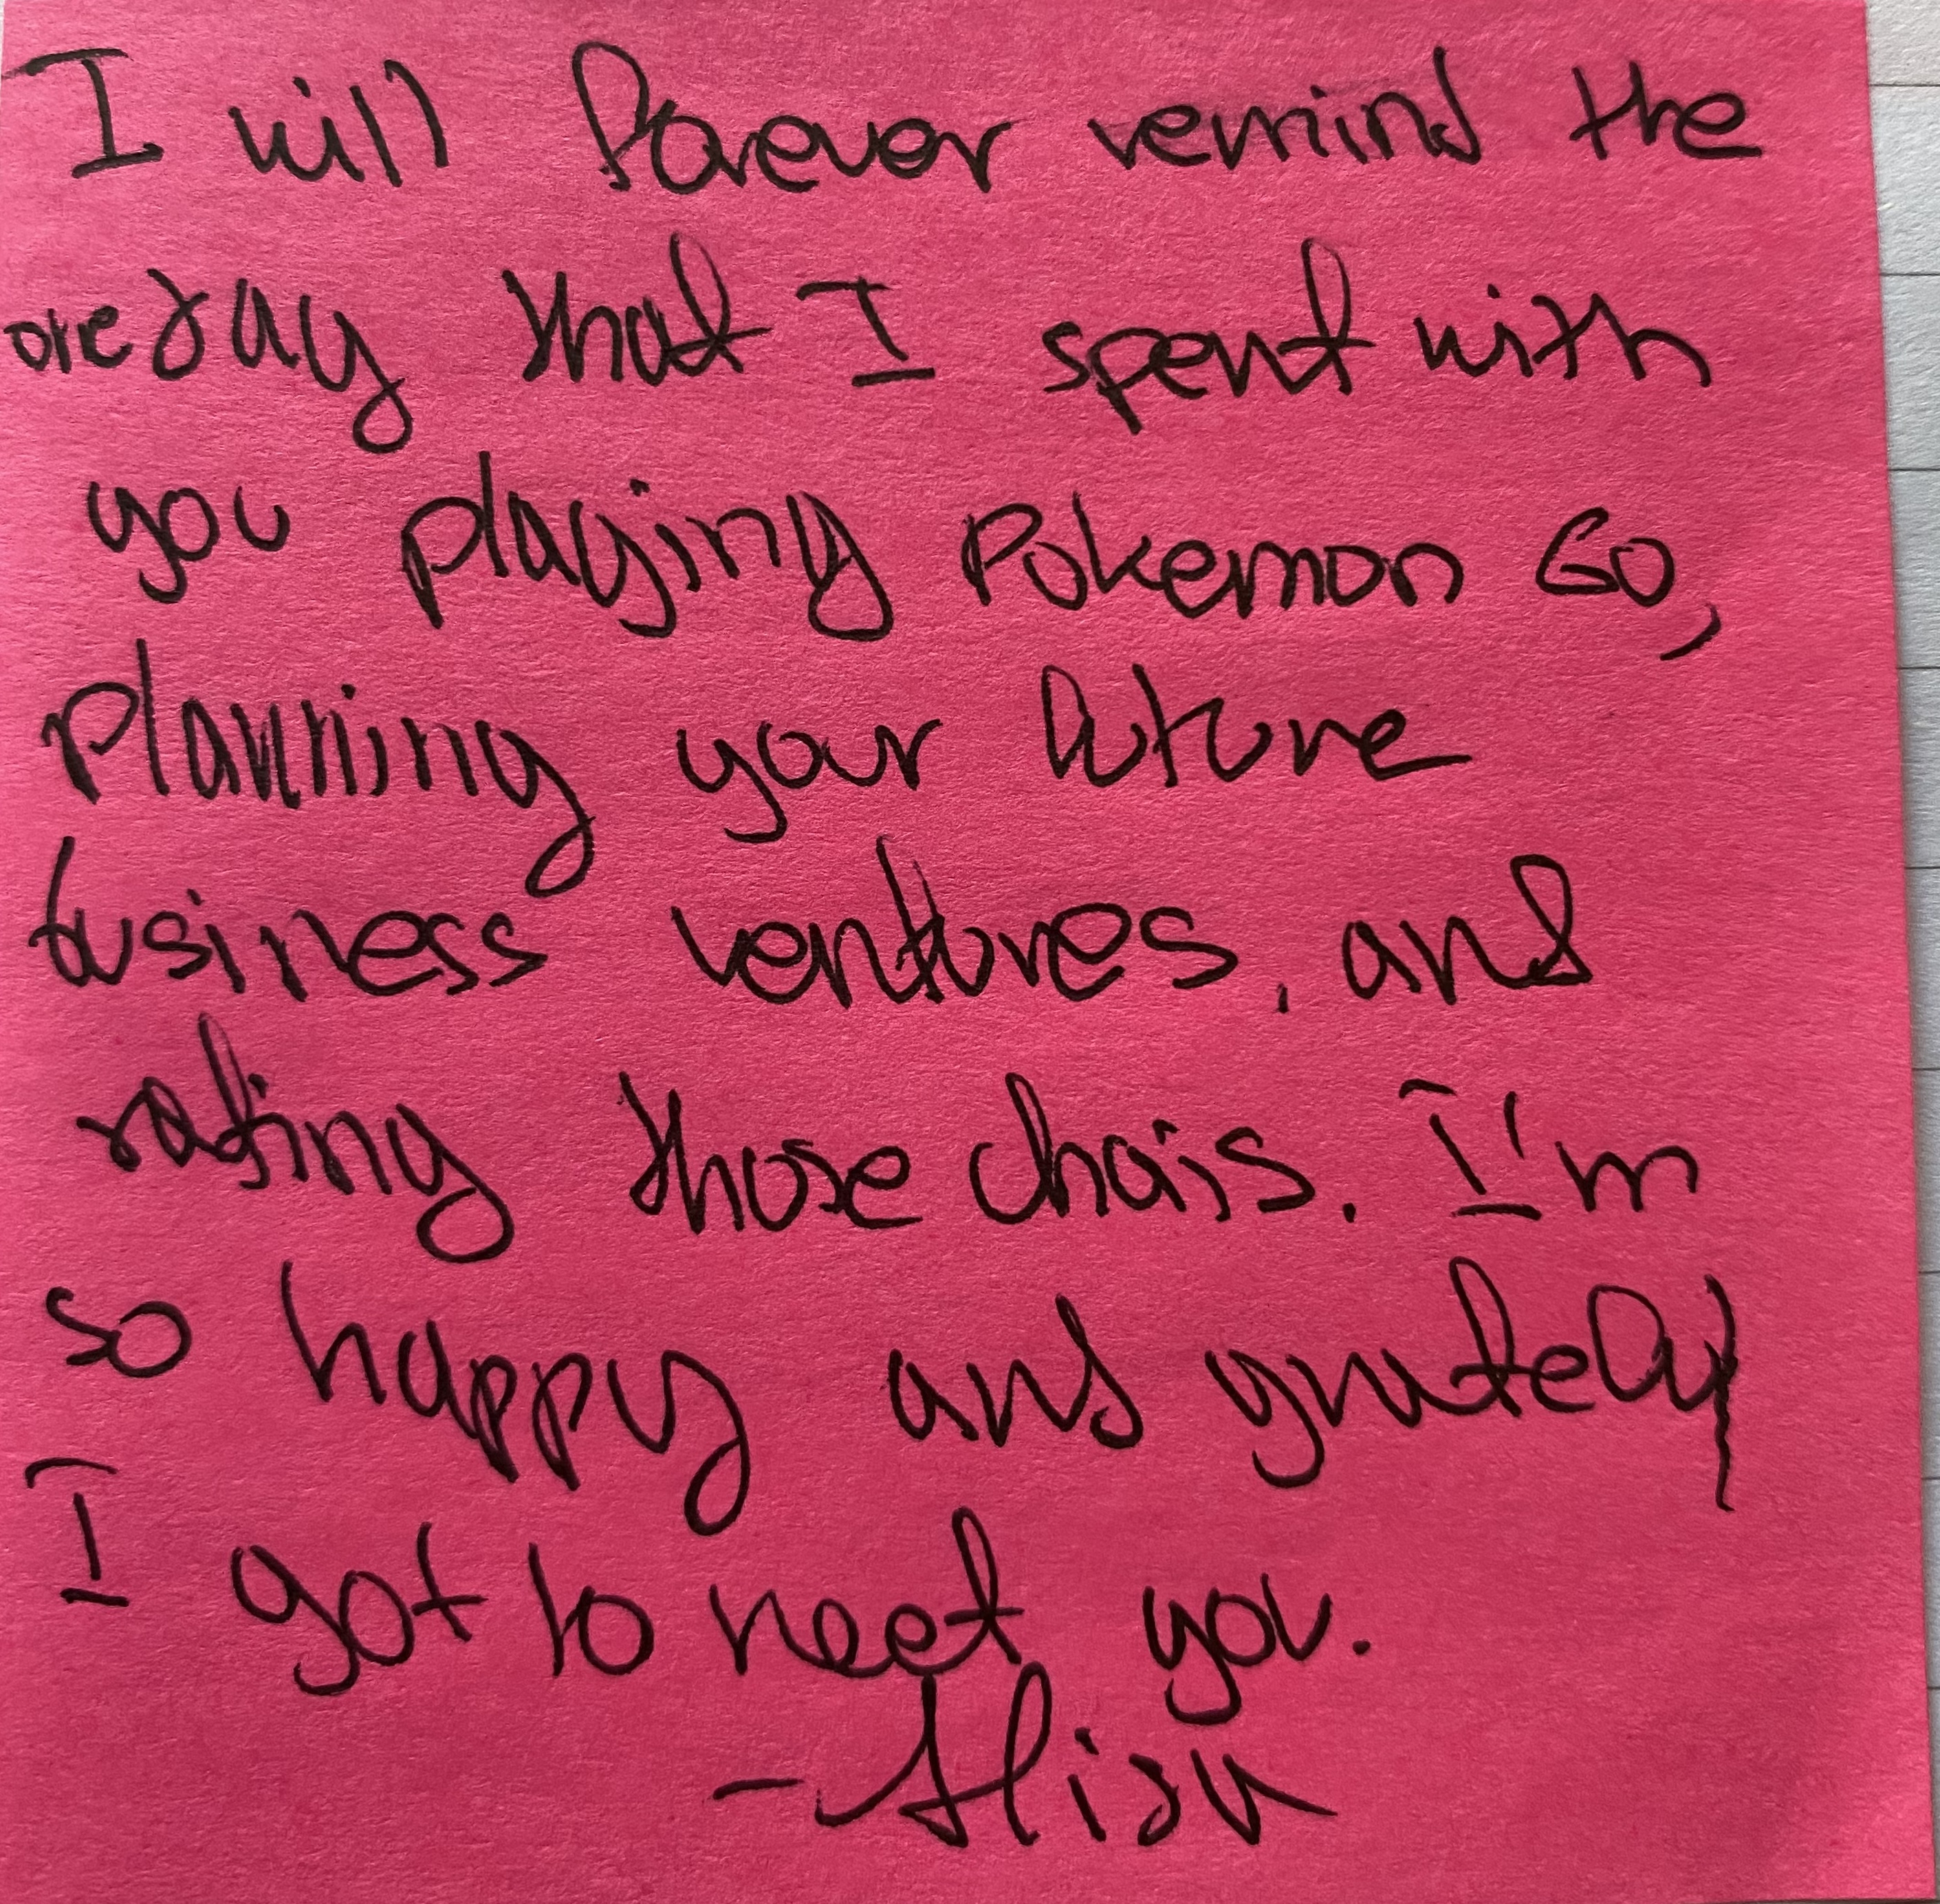 I will forever remind the
one day that I spent with
you playing Pokemon GO,
planning your future
business ventures, and
rating those chais. I'm
so happy and gratefly
I got to meet you.
- Alisa